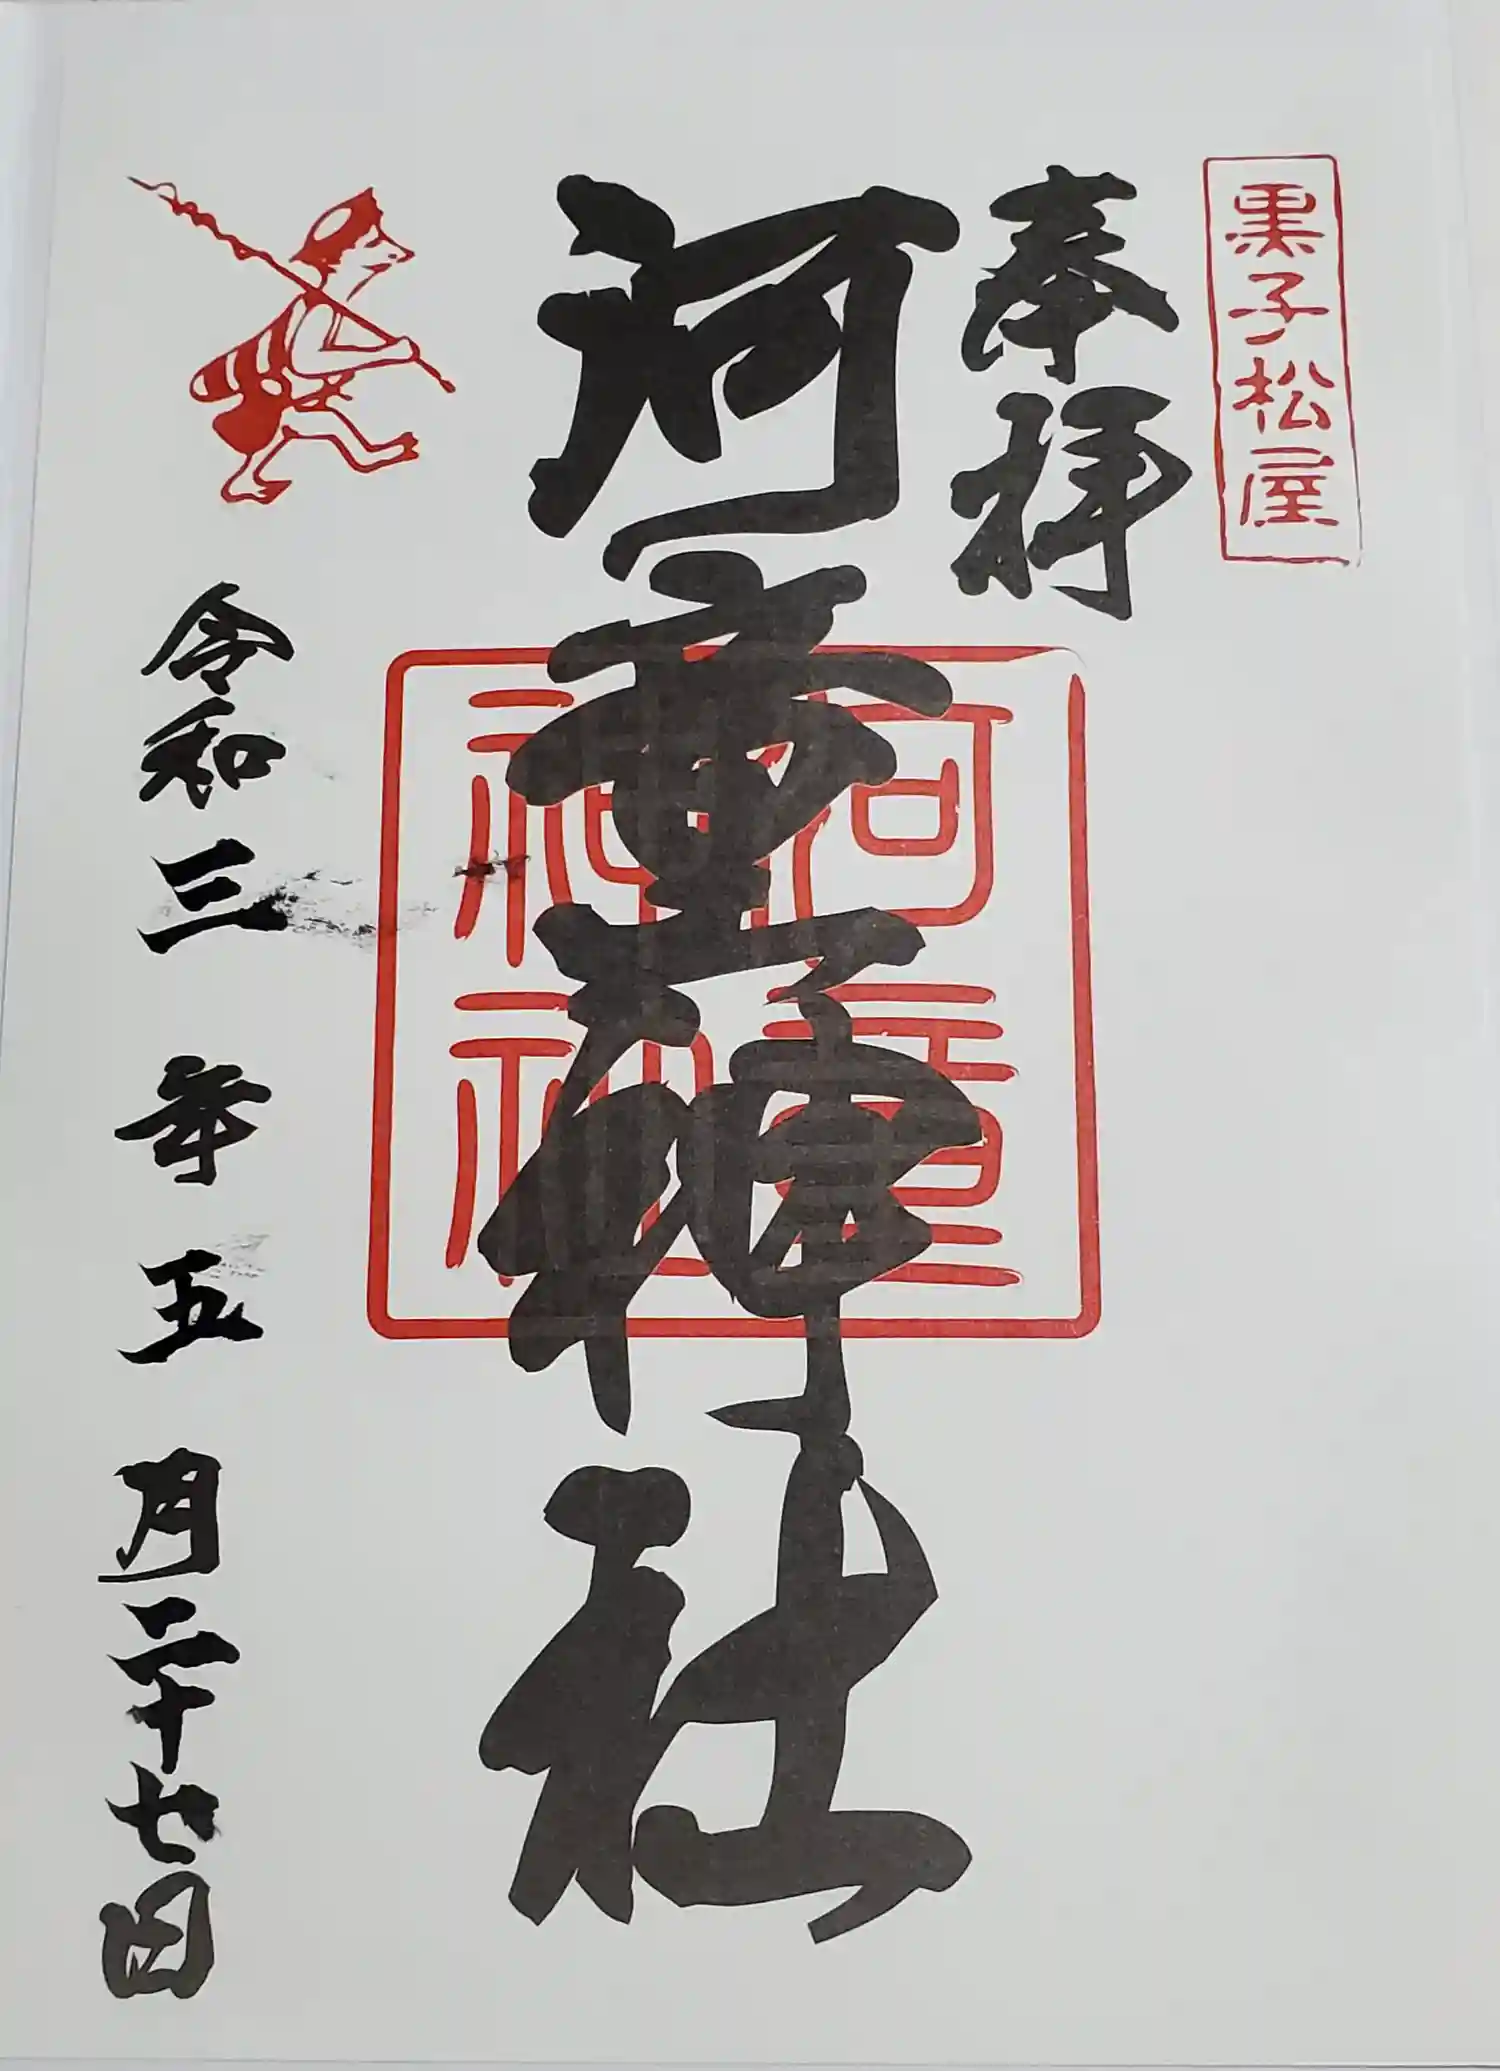 黒子松屋
奉拝
河童神社
河童神社
令和三年五月二十七日